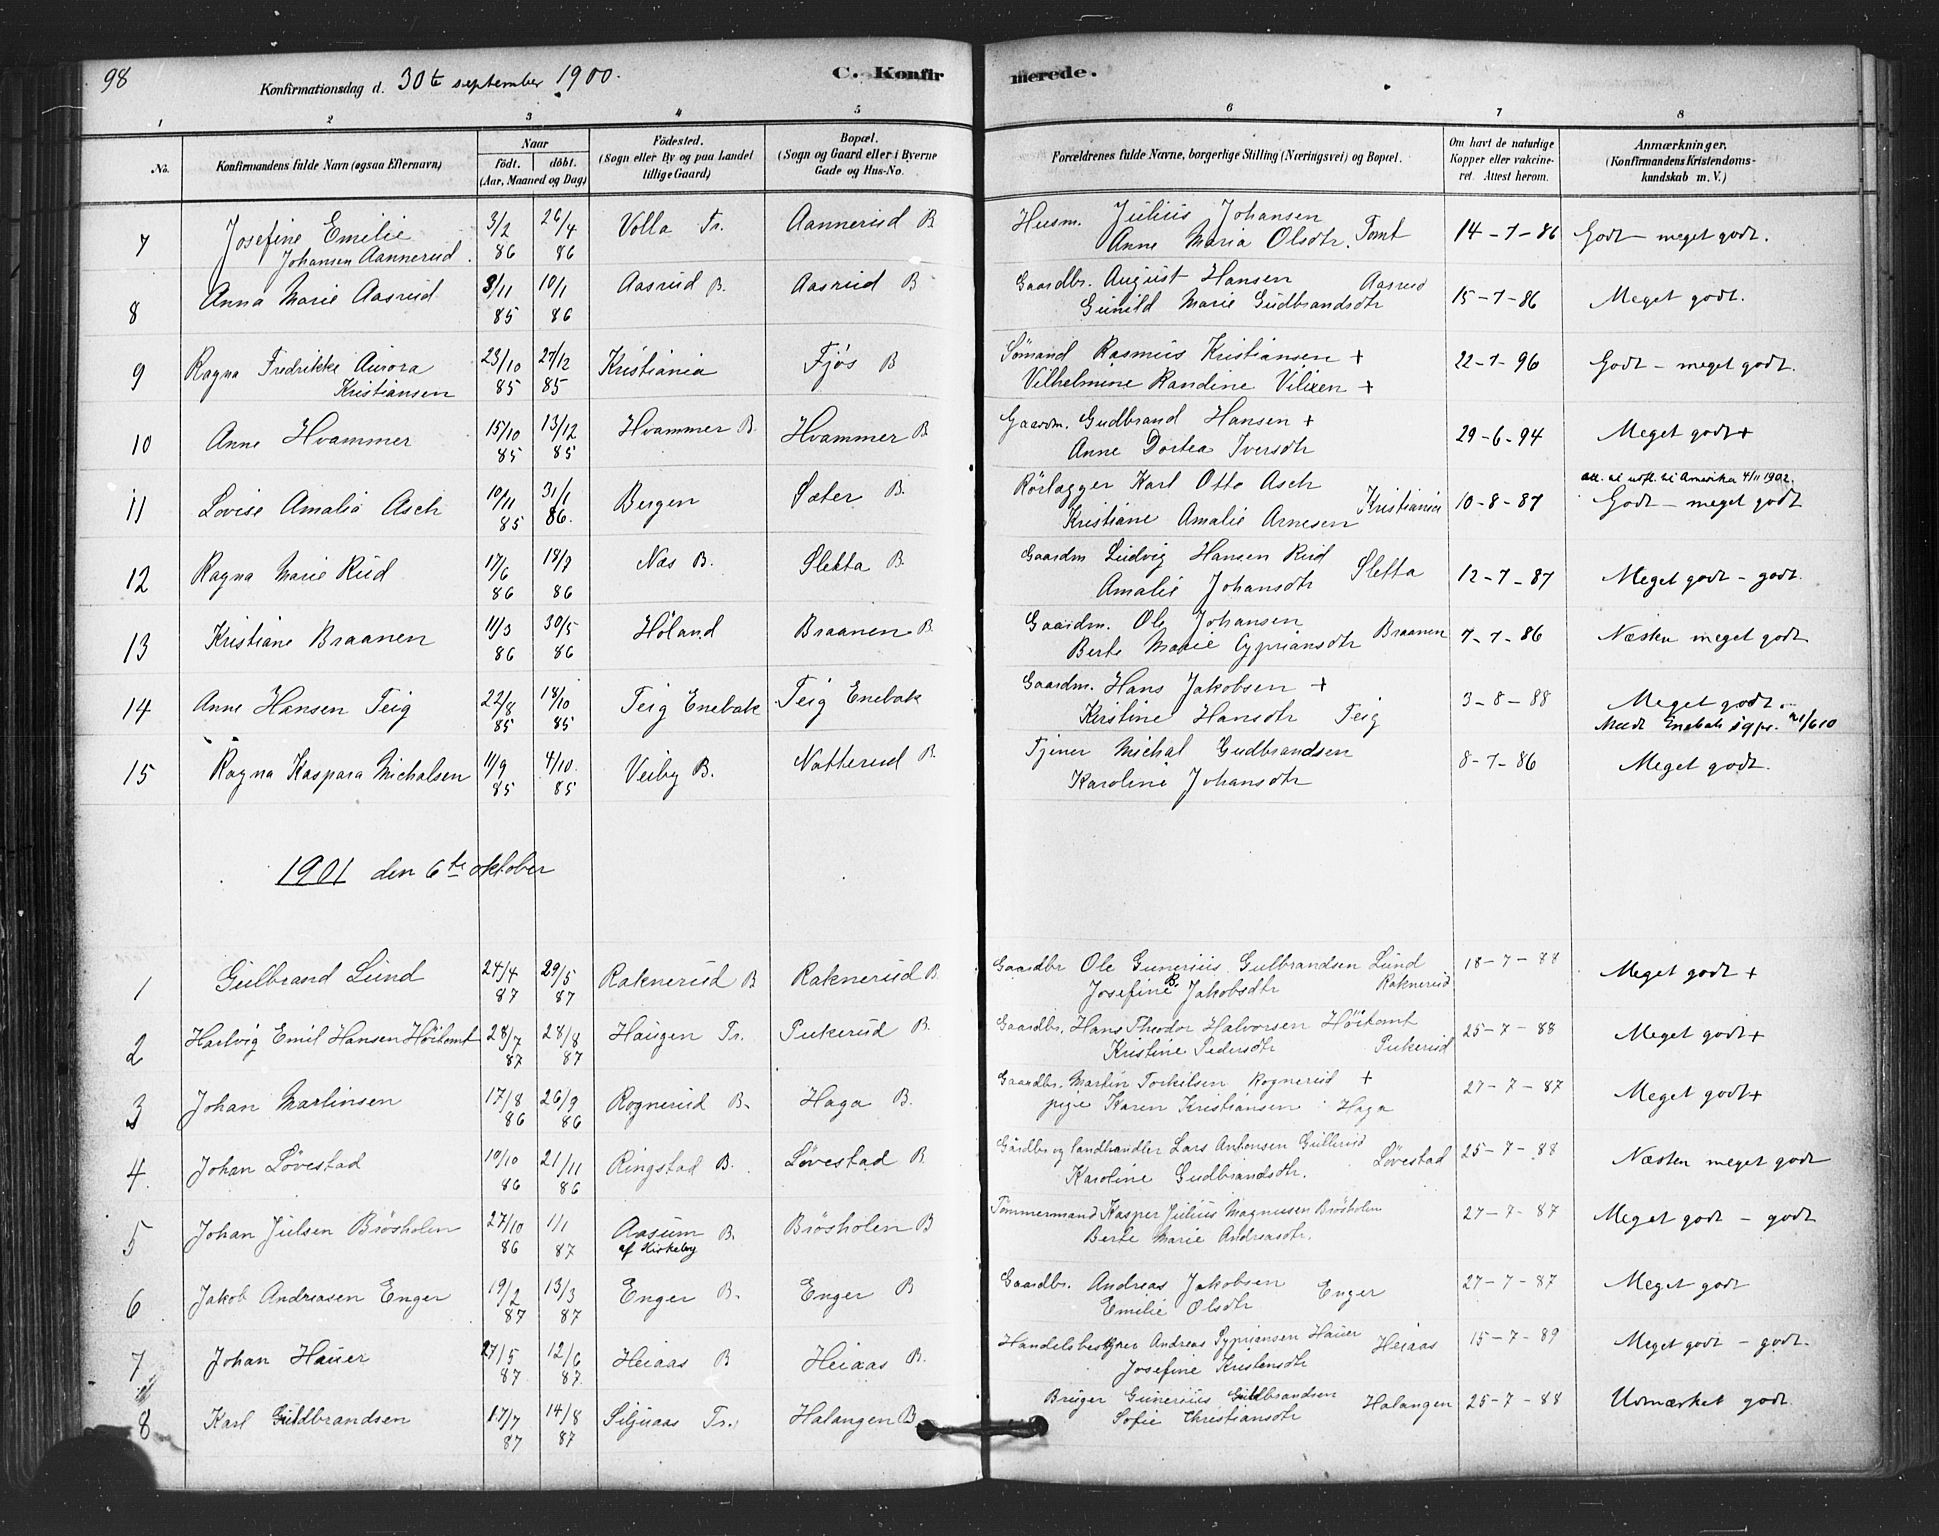 98
Konfirmationsdag d. 30te september 1900.
C. Konfirmerede.
1 2 3 4 5 6 7 8
No. Konfirmandens fulde Navn (ogsaa Efternavn) Naar födt. döbt. (Aar, Maaned og Dag) Födested. (Sogn eller By og paa Landet tillige Gaard) Bopæl. (Sogn og Gaard eller i Byerne Gade og Hus-No. Forældrenes fulde Navne, borgerlige Stilling (Næringsvei) og Bopæl. Om havt de naturlige Kopper eller vakcineret. Attest herom. Anmærkninger, (Konfirmandens Kristendomskundskab m. V.)
7 Josefine Emilie Johansen Aannerud. 3/2 86 26/4 86 Volla Tr. Aannerud B Husm. Julius Johansen Anne Maria Olsdtr. Tomt 14-7-86 Godt - meget godt.
8 Anna Marie Aasrud 3/11 85 10/1 86 Aasrud B. Aasrud B Gaardbr. August Hansen Gunild Marie Gudbrandsdtr Aasrud 15-7-86 Meget godt.
9 Ragna Fredrikke Aurora Kristiansen 23/10 85 27/12 85 Kristiania Fjös B Sömand Rasmus Kristiansen + Vilhelmine Randine Vilixen + 22-7-96 Godt - meget godt.
10 Anne Hvammer 15/10 85 13/12 85 Hvammer B Hvammer B Gaardm. Gudbrand Hansen + Anne Dortea Iversdtr 29-6-94 Meget godt+
11 Lovise Amalia Asch 10/11 85 31/1 86. Bergen Sæter B. Rörlægger Karl Otto Asch Kristiane Amalie Arnesen Kristiania 10-8-87 att. at udfl. til Amerika 4/11 1902. Godt - meget godt
12 Ragna Marie Rud 17/6 86 18/7 86 Næs B. Sletta B. Gaardm Ludvig Hansen Rud Amalie Johansdtr Sletta 12-7-87 Meget godt - godt.
13 Kristiane Braanen 11/3 86 30/5 86 Höland Braanen B. Gaardm. Ole Johansen Berte Marie Cypriansdtr Braanen 7-7-86 Næsten meget godt
14 Anne Hansen Teig 22/8 85 18/10 85 Teig Enebak Teig Enebak Gaardm. Hans Jakobsen + Kristine Hansdtr Teig 3-8-88 Meget godt.
Enebak 21/6 10
15 Ragna Kaspara Michalsen 11/9 85 4/10 85 Veiby B. Natterud B. Tjener Michal Gudbrandsen Karoline Johansdtr 8-7-86 Meget godt.
1901 den 6te oktober
1 Gulbrand Lund 24/4 87 29/5 87 Raknerud B Raknerud B. Gaardbr Ole Gunerius Gulbrandsen Lund Josefine B. Jakobsdtr Raknerud 18-7-88 Meget godt +
2 Hartvig Emil Hansen Höitomt 28/7 87 28/8 87 Haugen Tr. Pukerud B. Gaardbr. Hans Theodor Halvorsen Höitomt Kristine Pedersdtr Pukerud 25-7-88 Meget godt +
3 Johan Martinsen 17/8 86 26/9 86 Rognerud B. Haga B. Gaardbr. Martin Torkilsen Rognerud + pige Karen Kristiansen Haga 27-7-87 Meget godt+
4. Johan Lövestad 19/10 86 21/11 86 Ringstad B. Lövestad B Gårdbr og landhandler Lars Antonsen Gullerud Karoline Gudbrandsdtr. Lövestad 25-7-88 Næsten meget godt
5 Johan Julsen Brösholen 27/10 86 1/1 87 Aasum B. af Kirkeby Brösholen B Tömmermand Kasper Julius Magnusen Brösholen Berte Marie Andreasdtr. 27-7-87 Meget godt - godt
6 Jakob Andreasen Enger 19/2 87 13/3 87 Enger B. Enger B Gaardbr. Andreas Jakobsen Emilie Olsdtr Enger 27-7-87 Meget godt
7 Johan Hauer 27/5 87 12/6 87 Heiaas B Heiaas B. Handelsbestyrer Andreas Sypriansen Hauer Josefine Kristensdtr Heiaas 15-7-89 Meget godt - godt.
8 Karl Guldbrandsen 17/7 87 14/8 87 Siljuaas Tr. Halangen B Bruger Gunerius Guldbrandsen Sofie Christiansdtr Halangen 25-7-88 Udmærket godt.